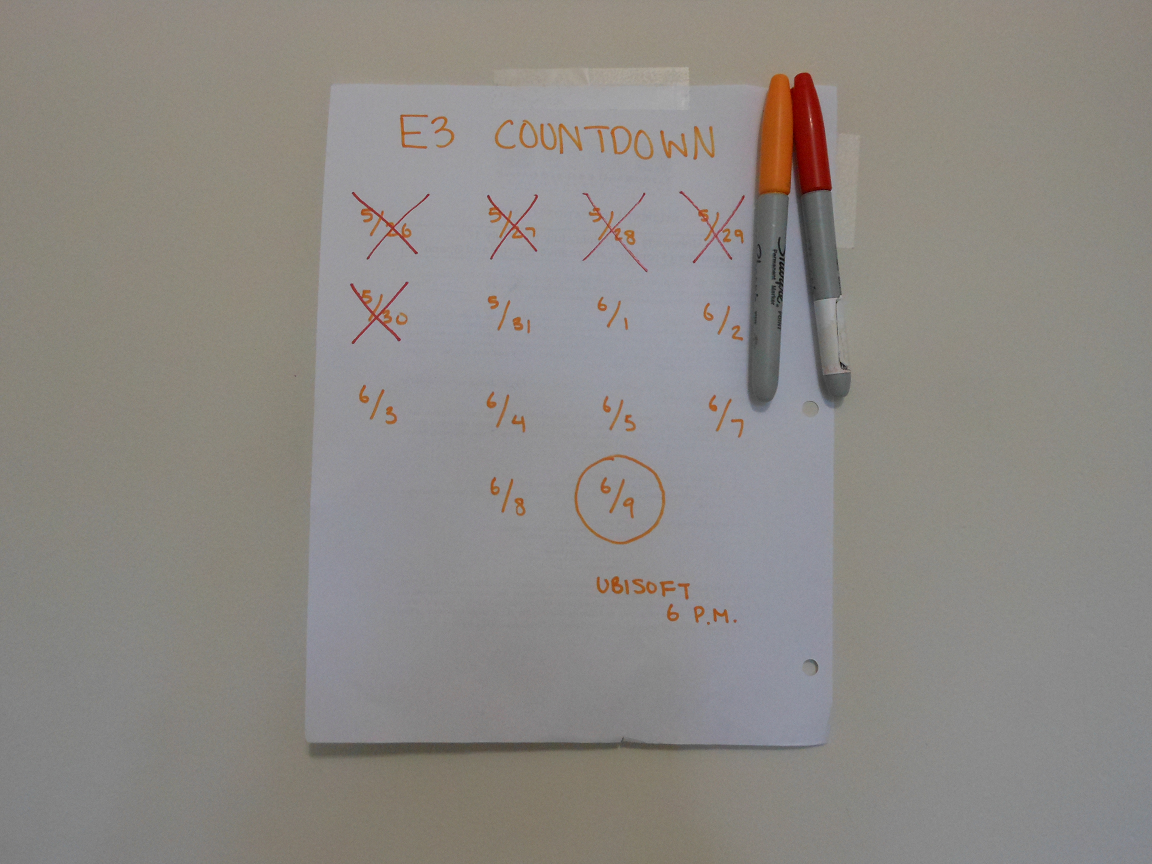 E3 COUNTDOWN
5/26 5/27 5/28 5/29
5/30 5/31 6/1 6/2
6/3 6/4 6/5 6/7
6/8 6/9
UBISOFT
6 P.M.
Sharpie
Permanent Marker